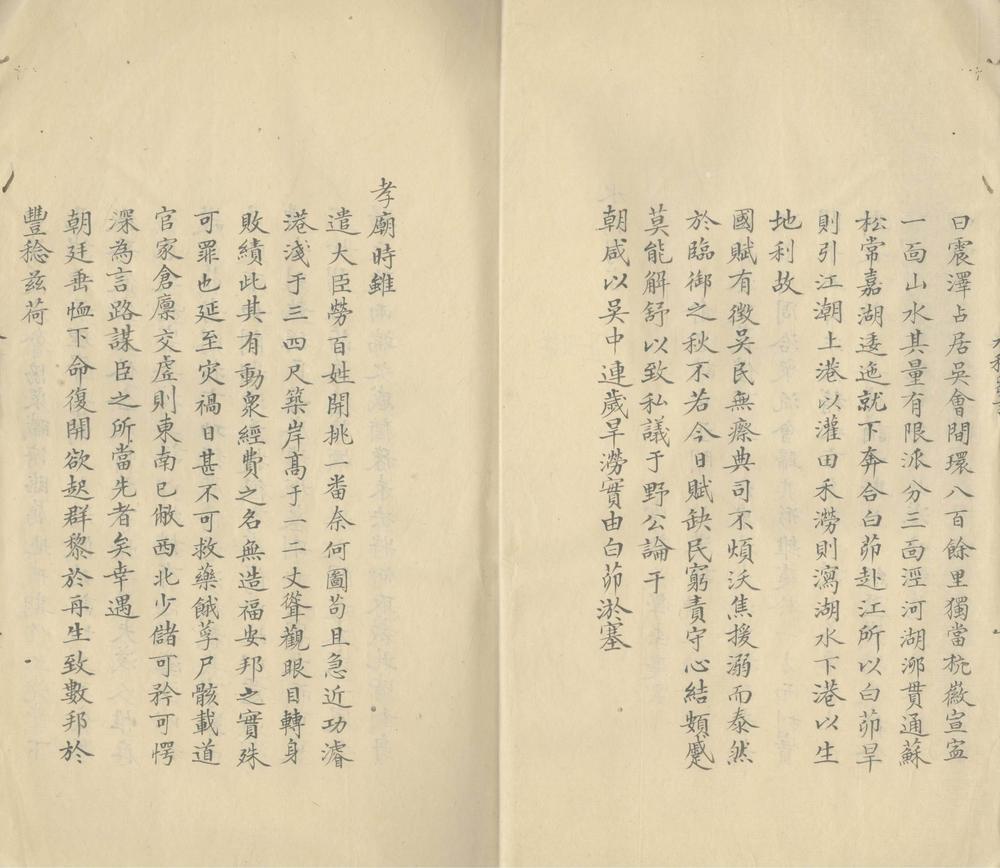 曰震澤占居吳會間環八百餘里獨當杭徽宣寍
一面山水其量有限派分三面涇河湖泖貫通蘇
松常嘉湖逶迤就下奔合白茆赴江所以白茆旱
則引江潮上港以灌田禾澇則瀉湖水下港以生
地利故
國賦有徵吳民無瘵典司不煩沃焦援溺而泰然
於臨御之秋不若今日賦缺民窮責守心結頞蹙
莫能解舒以致私議于野公論于
朝咸以吳中連歲旱澇實由白茆淤塞
孝廟時雖
遣大臣勞百姓開挑一番奈何圖苟且急近功濬
港淺于三四尺築岸高于一二丈聳觀眼目轉身
敗績此其有動衆經費之名無造福安邦之實殊
可罪也延至灾禍日甚不可救藥餓莩尸骸載道
官家倉廩交虛則東南已敝西北少儲可矜可愕
深為言路謀臣之所當先者矣幸遇
朝廷垂恤下命復開欲起群黎於再生致數邦於
豐稔茲荷